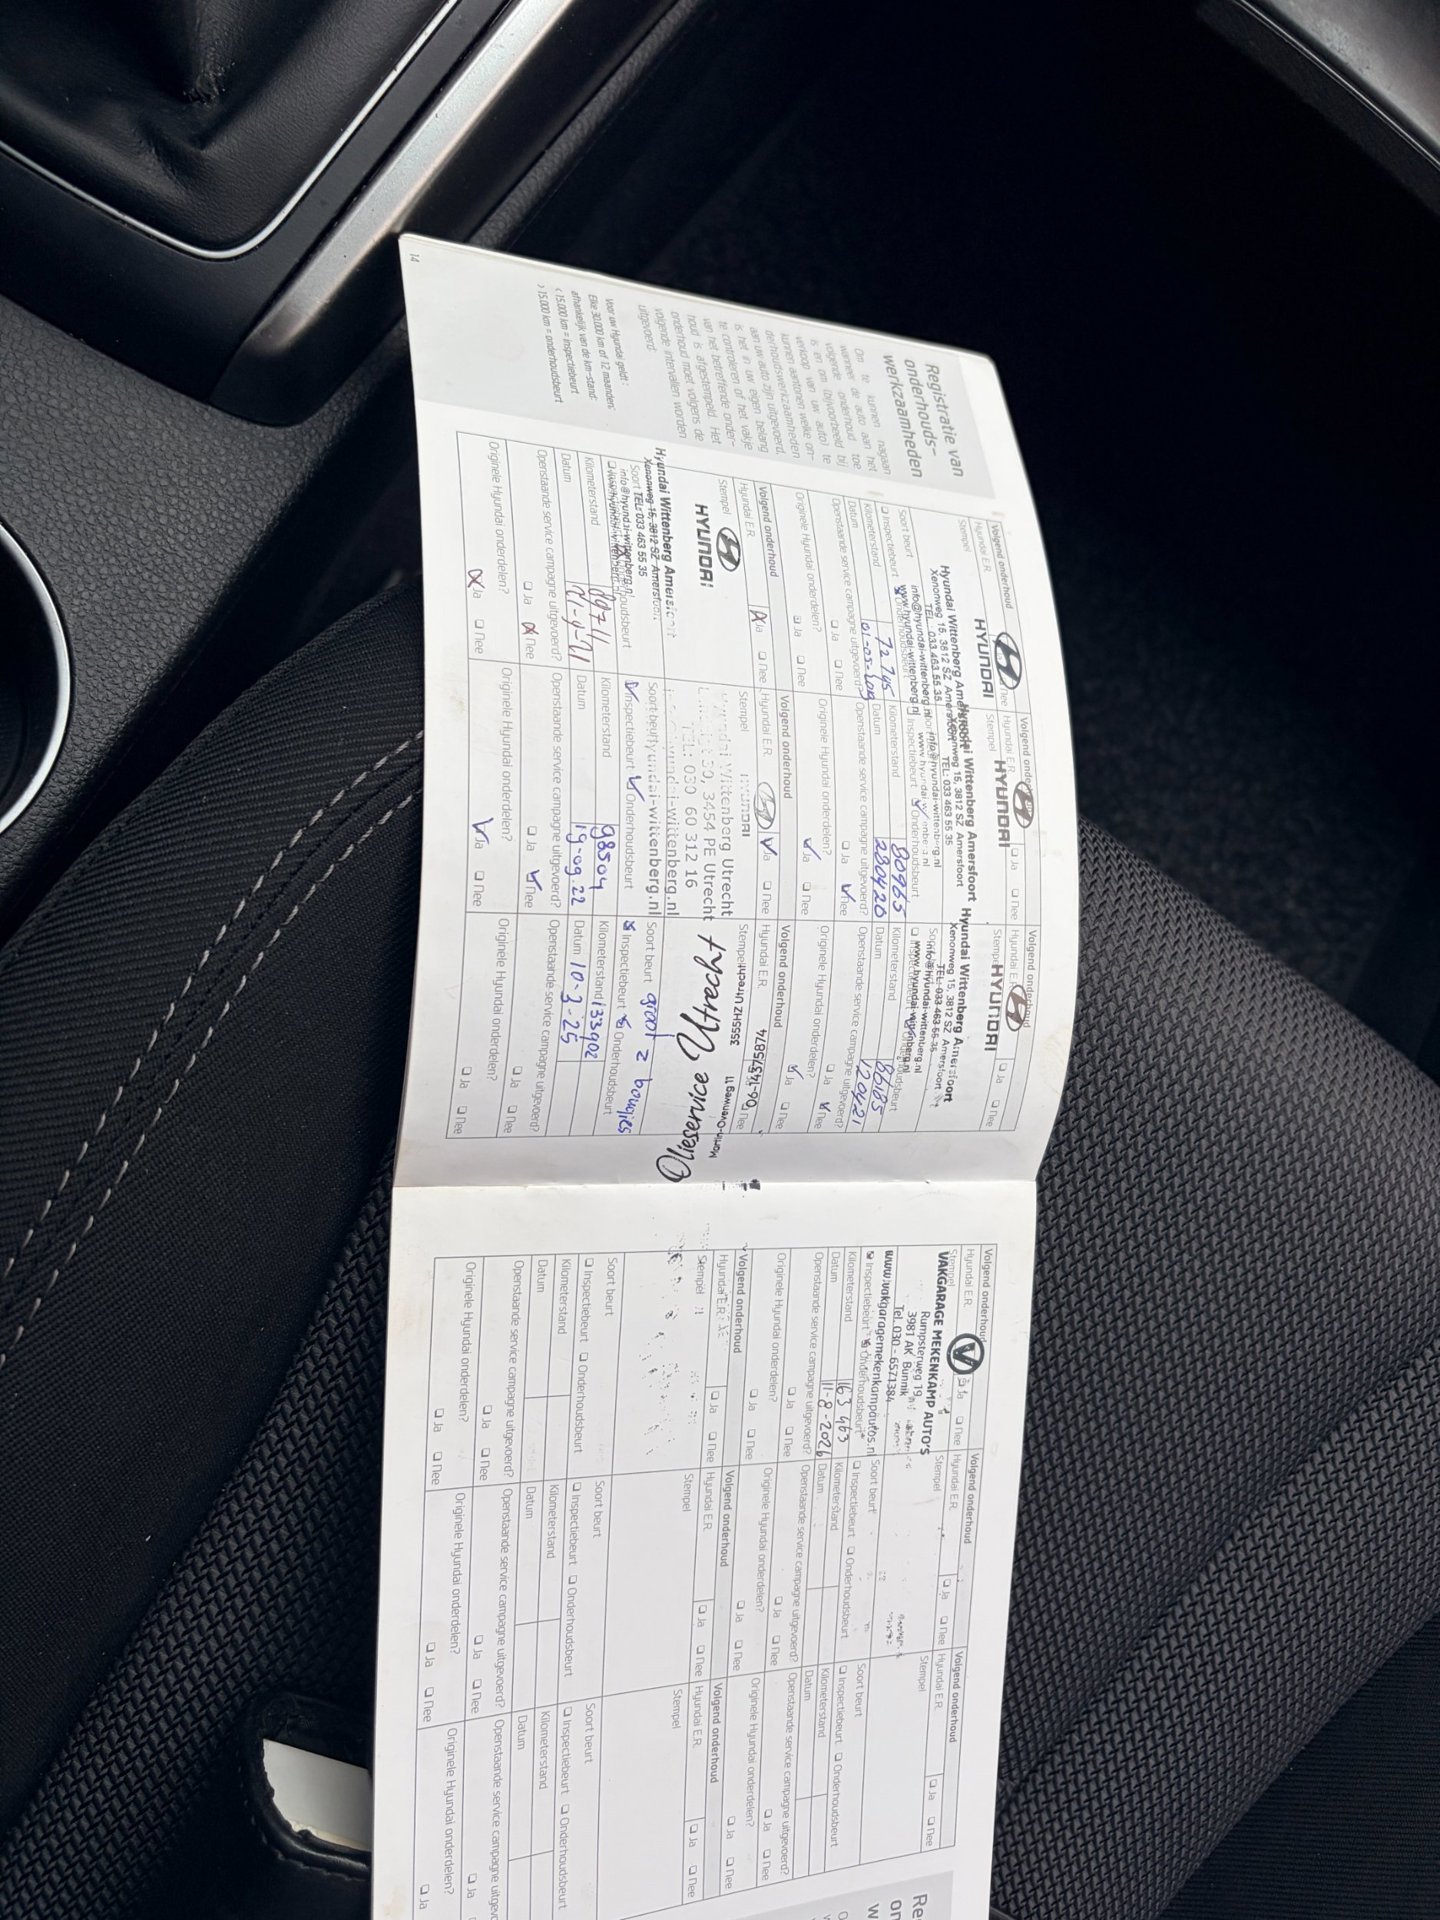 Registratie van
onderhouds-
werkzaamheden
Om te kunnen nagaan
wanneer de auto aan het
volgende onderhoud toe
is en om (bijvoorbeeld bij
verkoop van uw auto) te
kunnen aantonen welke on-
derhoudswerkzaamheden
aan uw auto zijn uitgevoerd,
is het in uw eigen belang
te controleren of het vakje
van het betreffende onder-
houd is afgestempeld. Het
onderhoud moet volgens de
volgende intervallen worden
uitgevoerd:
Voor uw Hyundai geldt :
Elke 30.000 km of 12 maanden,
afhankelijk van de km-stand:
< 15.000 km = inspectiebeurt
> 15.000 km = onderhoudsbeurt
14
Volgend onderhoud
Hyundai E.R. Nee
Stempel
HYUNDAI
Hyundai Wittenberg Amersfoort
Xenonweg 15, 3812 SZ Amersfoort
TEL: 033 463 55 35
info@hyundai-wittenberg.nl
www.hyundai-wittenberg.nl
Soort beurt
Inspectiebeurt Onderhoudsbeurt
Kilometerstand 72745
Datum
Openstaande service campagne uitgevoerd?
Ja Nee
Originele Hyundai onderdelen?
Ja Nee
Volgend onderhoud
Hyundai E.R. Ja Nee
Stempel
HYUNDAI
Hyundai Wittenberg Amersfoort
Xenonweg 15, 3812 SZ Amersfoort
TEL: 033 463 55 35
info@hyundai-wittenberg.nl
Inspectiebeurt Onderhoudsbeurt
Kilometerstand 80965
Datum 280420
Openstaande service campagne uitgevoerd?
Ja Nee
Originele Hyundai onderdelen?
Ja Nee
Volgend onderhoud
Hyundai E.R. Ja Nee
Stempel
HYUNDAI
Hyundai Wittenberg Amersfoort
Xenonweg 15, 3812 SZ Amersfoort
TEL: 033 463 55 35
info@hyundai-wittenberg.nl
www.hyundai-wittenberg.nl
Kilometerstand 86185
Datum 120421
Openstaande service campagne uitgevoerd?
Ja Nee
Originele Hyundai onderdelen?
Ja Nee
Volgend onderhoud
Hyundai E.R. Ja Nee
Stempel
HYUNDAI
Hyundai Wittenberg Amersfoort
Xenonweg 15, 3812 SZ Amersfoort
Soort TEL: 033 463 55 35
info@hyundai-wittenberg.nl
Kilometerstand
Datum
Openstaande service campagne uitgevoerd?
Ja Nee
Originele Hyundai onderdelen?
Ja Nee
Volgend onderhoud
Hyundai E.R. Ja Nee
Stempel HYUNDAI
Wittenberg Utrecht
30, 3454 PE Utrecht
TEL: 030 60 312 16
hyundai-wittenberg.nl
Soort beurt hyundai-wittenberg.nl
Inspectiebeurt Onderhoudsbeurt
Kilometerstand 98504
Datum 19-09.22
Openstaande service campagne uitgevoerd?
Ja Nee
Originele Hyundai onderdelen?
Ja Nee
Volgend onderhoud
Hyundai E.R. Nee
06-14375874
Stempel 3555HZ Utrecht
Martin-Overweg 11
Olieservice Utrecht
Soort beurt groot z bougies
Inspectiebeurt Onderhoudsbeurt
Kilometerstand 133902
Datum 10-3-25
Openstaande service campagne uitgevoerd?
Ja Nee
Originele Hyundai onderdelen?
Ja Nee
Volgend onderhoud
Hyundai E.R. Ja Nee
Stempel
VAKGARAGE MEKENKAMP AUTO'S
Rumpsterweg 19
3981 AK Bunnik
Tel. 030 - 6571384
www.vakgaragemekenkampautos.nl
Inspectiebeurt Onderhoudsbeurt
Kilometerstand 163463
Datum 11-8-2026
Openstaande service campagne uitgevoerd?
Ja Nee
Originele Hyundai onderdelen?
Ja Nee
Volgend onderhoud
Hyundai E.R. Ja Nee
Stempel
Soort beurt
Inspectiebeurt Onderhoudsbeurt
Kilometerstand
Datum
Openstaande service campagne uitgevoerd?
Ja Nee
Originele Hyundai onderdelen?
Ja Nee
Volgend onderhoud
Hyundai E.R. Ja Nee
Stempel
Soort beurt
Inspectiebeurt Onderhoudsbeurt
Kilometerstand
Datum
Openstaande service campagne uitgevoerd?
Ja Nee
Originele Hyundai onderdelen?
Ja Nee
Volgend onderhoud
Hyundai E.R. Ja Nee
Stempel
Soort beurt
Inspectiebeurt Onderhoudsbeurt
Kilometerstand
Datum
Openstaande service campagne uitgevoerd?
Ja Nee
Originele Hyundai onderdelen?
Ja Nee
Volgend onderhoud
Hyundai E.R. Ja Nee
Stempel
Soort beurt
Inspectiebeurt Onderhoudsbeurt
Kilometerstand
Datum
Openstaande service campagne uitgevoerd?
Ja Nee
Originele Hyundai onderdelen?
Ja Nee
Volgend onderhoud
Hyundai E.R. Ja Nee
Stempel
Soort beurt
Inspectiebeurt Onderhoudsbeurt
Kilometerstand
Datum
Openstaande service campagne uitgevoe
Ja
Originele Hyundai onderdelen?
Ja
Re
on
w